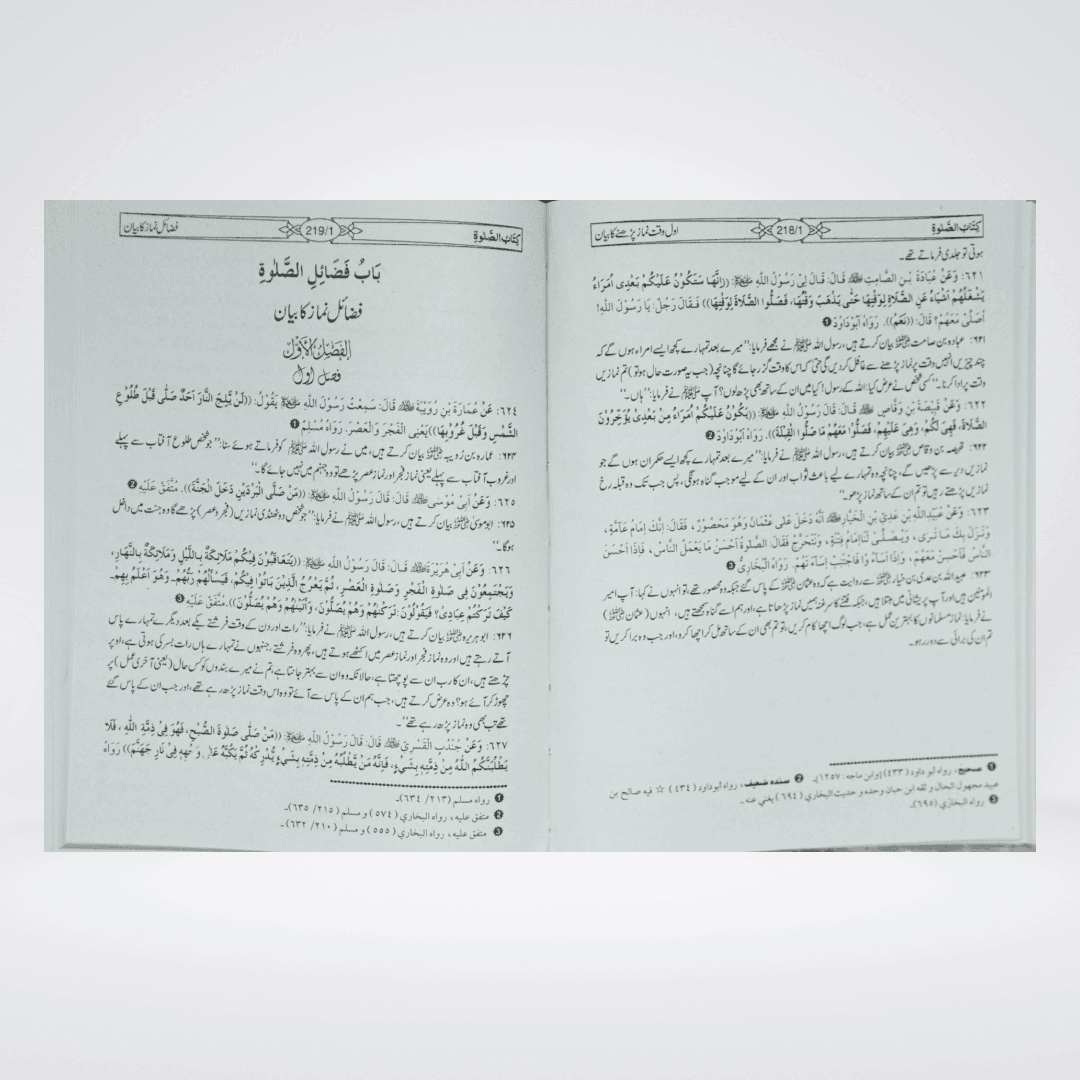 كِتَابُ الصَّلٰوةِ 218/1 اول وقت نماز پڑھنے کا بیان
ہوتی تو جلدی فرماتے تھے۔
٦٢١: وَعَنْ عُبَادَةَ بْنِ الصَّامِتِ ﷛ قَالَ: قَالَ لِيْ رَسُوْلُ اللّٰهِ ﷺ: ((اِنَّهَا سَتَكُوْنُ عَلَيْكُمْ بَعْدِى اُمَرَاءُ
يَشْغَلُهُمْ اَشْيَاءُ عَنِ الصَّلَاةِ لِوَقْتِهَا حَتّٰى يَذْهَبَ وَقْتُهَا، فَصَلُّوا الصَّلَاةَ لِوَقْتِهَا)) فَقَالَ رَجُلٌ: يَا رَسُوْلَ اللّٰهِ!
اُصَلِّىْ مَعَهُمْ؟ قَالَ: ((نَعَمْ)). رَوَاهُ اَبُوْدَاوُدَ ❶
۶۲۱: عبادہ بن صامت ﷛ بیان کرتے ہیں، رسول اللہ ﷺ نے مجھے فرمایا: ’’میرے بعد تمہارے کچھ ایسے امراء ہوں گے کہ
چند چیزیں انہیں وقت پر نماز پڑھنے سے غافل کر دیں گی حتیٰ کہ اس کا وقت گزر جائے گا چنانچہ (جب یہ صورت حال ہو تو) تم نمازیں
وقت پر ادا کرنا۔‘‘ کسی شخص نے عرض کیا: اللہ کے رسول! کیا میں ان کے ساتھ بھی پڑھ لوں؟ آپ ﷺ نے فرمایا: ’’ہاں۔‘‘
٦٢٢: وَعَنْ قَبِيْصَةَ بْنِ وَقَّاصٍ ﷛ قَالَ: قَالَ رَسُوْلُ اللّٰهِ ﷺ: ((يَكُوْنُ عَلَيْكُمْ اُمَرَاءُ مِنْ بَعْدِىْ يُؤَخِّرُوْنَ
الصَّلَاةَ، فَهِىَ لَكُمْ، وَهِىَ عَلَيْهِمْ، فَصَلُّوْا مَعَهُمْ مَا صَلُّوا الْقِبْلَةَ)). رَوَاهُ اَبُوْدَاوُدَ ❷
۶۲۲: قبیصہ بن وقاص ﷛ بیان کرتے ہیں، رسول اللہ ﷺ نے فرمایا: ’’میرے بعد تمہارے کچھ ایسے حکمران ہوں گے جو
نمازیں دیر سے پڑھیں گے، چنانچہ وہ تمہارے لیے باعث ثواب اور ان کے لیے موجب گناہ ہوں گی، پس جب تک وہ قبلہ رخ
نمازیں پڑھتے رہیں تو تم ان کے ساتھ نماز پڑھو۔‘‘
٦٢٣: وَعَنْ عُبَيْدِاللّٰهِ بْنِ عَدِىِّ بْنِ الْخِيَارِ ﷛ اَنَّهُ دَخَلَ عَلٰى عُثْمَانَ وَهُوَ مَحْصُوْرٌ، فَقَالَ: اِنَّكَ اِمَامُ عَامَّةٍ،
وَنَزَلَ بِكَ مَا تَرٰى، وَيُصَلِّىْ لَنَا اِمَامُ فِتْنَةٍ، وَنَتَحَرَّجُ فَقَالَ: الصَّلٰوةُ اَحْسَنُ مَا يَعْمَلُ النَّاسُ، فَاِذَا اَحْسَنَ
النَّاسُ فَاَحْسِنْ مَعَهُمْ، وَاِذَا اَسَاءُ وْا فَاجْتَنِبْ اِسَاءَ تَهُمْ. رَوَاهُ الْبُخَارِىُّ ❸
۶۲۳: عبیداللہ بن عدی بن خیار ﷛ سے روایت ہے کہ وہ عثمان ﷛ کے پاس گئے جبکہ وہ محصور تھے، تو انہوں نے کہا: آپ امیر
المومنین ہیں اور آپ پر پریشانی میں مبتلا ہیں، جبکہ فتنے کا سرغنہ ہمیں نماز پڑھاتا ہے، اور ہم اسے گناہ سمجھتے ہیں، انہوں (عثمان ﷛)
نے فرمایا: نماز مسلمانوں کا بہترین عمل ہے، جب لوگ اچھا کام کریں، تو تم بھی ان کے ساتھ مل کر اچھا کرو، اور جب وہ برا کریں تو
تم ان کی برائی سے دور رہو۔
❶ صحیح، رواه أبو داود (٤٣٣) [وابن ماجه: ١٢٥٧]۔ ❷ سنده ضعيف، رواه أبوداود (٤٣٤) ☆ فيه صالح بن
عبيد مجهول الحال و ثقه ابن حبان وحده و حديث البخاري (٦٩٤) يغني عنه۔
❸ رواه البخاري (٦٩٥)۔
كِتَابُ الصَّلٰوةِ 219/1 فضائل نماز کا بیان
بَابُ فَضَائِلِ الصَّلٰوةِ
فضائل نماز کا بیان
الْفَصْلُ الْاَوَّلُ
فصل اول
٦٢٤: عَنْ عُمَارَةَ بْنِ رُوَيْبَةَ ﷛ قَالَ: سَمِعْتُ رَسُوْلَ اللّٰهِ ﷺ يَقُوْلُ: ((لَنْ يَّلِجَ النَّارَ اَحَدٌ صَلّٰى قَبْلَ طُلُوْعِ
الشَّمْسِ وَقَبْلَ غُرُوْبِهَا)) يَعْنِى الْفَجْرَ وَالْعَصْرَ. رَوَاهُ مُسْلِمٌ ❶
۶۲۴: عمارہ بن رویبہ ﷛ بیان کرتے ہیں، میں نے رسول اللہ ﷺ کو فرماتے ہوئے سنا: ’’جو شخص طلوع آفتاب سے پہلے
اور غروب آفتاب سے پہلے یعنی نماز فجر اور نماز عصر پڑھے تو وہ جہنم میں نہیں جائے گا۔‘‘
٦٢٥: وَعَنْ اَبِىْ مُوْسٰى ﷛ قَالَ: قَالَ رَسُوْلُ اللّٰهِ ﷺ: ((مَنْ صَلَّى الْبَرْدَيْنِ دَخَلَ الْجَنَّةَ)). مُتَّفَقٌ عَلَيْهِ ❷
۶۲۵: ابو موسیٰ ﷛ بیان کرتے ہیں، رسول اللہ ﷺ نے فرمایا: ’’جو شخص دو ٹھنڈی نمازیں (فجر و عصر) پڑھے گا وہ جنت میں داخل
ہوگا۔‘‘
٦٢٦: وَعَنْ اَبِىْ هُرَيْرَةَ ﷛ قَالَ: قَالَ رَسُوْلُ اللّٰهِ ﷺ: ((يَتَعَاقَبُوْنَ فِيْكُمْ مَلَائِكَةٌ بِاللَّيْلِ وَمَلَائِكَةٌ بِالنَّهَارِ،
وَيَجْتَمِعُوْنَ فِى صَلٰوةِ الْفَجْرِ وَصَلٰوةِ الْعَصْرِ، ثُمَّ يَعْرُجُ الَّذِيْنَ بَاتُوْا فِيْكُمْ، فَيَسْاَلُهُمْ رَبُّهُمْ۔ وَهُوَ اَعْلَمُ بِهِمْ۔
كَيْفَ تَرَكْتُمْ عِبَادِىْ؟ فَيَقُوْلُوْنَ: تَرَكْنٰهُمْ وَهُمْ يُصَلُّوْنَ، وَاَتَيْنٰهُمْ وَهُمْ يُصَلُّوْنَ)). مُتَّفَقٌ عَلَيْهِ ❸
۶۲۶: ابو ہریرہ ﷛ بیان کرتے ہیں، رسول اللہ ﷺ نے فرمایا: ’’رات اور دن کے وقت فرشتے یکے بعد دیگرے تمہارے پاس
آتے رہتے ہیں اور وہ نماز فجر اور نماز عصر میں اکٹھے ہوتے ہیں، پھر وہ فرشتے، جنہوں نے تمہارے ہاں رات بسر کی ہوتی ہے، اوپر
چڑھتے ہیں، ان کا رب ان سے پوچھتا ہے، حالانکہ وہ ان سے بہتر جانتا ہے، تم نے میرے بندوں کو کس حال (یعنی آخری عمل) پر
چھوڑ کر آئے ہو؟ وہ عرض کرتے ہیں، جب ہم ان کے پاس سے آئے تو وہ اس وقت نماز پڑھ رہے تھے، اور جب ان کے پاس گئے
تھے تب بھی وہ نماز پڑھ رہے تھے‘‘۔
٦٢٧: وَعَنْ جُنْدُبٍ الْقَسْرِىِّ ﷛ قَالَ: قَالَ رَسُوْلُ اللّٰهِ ﷺ: ((مَنْ صَلّٰى صَلٰوةَ الصُّبْحِ، فَهُوَ فِىْ ذِمَّةِ اللّٰهِ، فَلَا
يَطْلُبَنَّكُمُ اللّٰهُ مِنْ ذِمَّتِهٖ بِشَىْءٍ، فَاِنَّهٗ مَنْ يَّطْلُبْهُ مِنْ ذِمَّتِهٖ بِشَىْءٍ يُّدْرِكْهُ ثُمَّ يَكُبُّهُ عَلٰى وَجْهِهٖ فِىْ نَارِ جَهَنَّمَ)) رَوَاهُ
❶ رواه مسلم (٢١٣/ ٦٣٤)۔
❷ متفق عليه، رواه البخاري (٥٧٤) و مسلم (٢١٥/ ٦٣٥)۔
❸ متفق عليه، رواه البخاري (٥٥٥) و مسلم (٢١٠/ ٦٣٢)۔